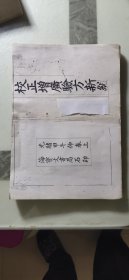 校正增廣驗方新編
光緒甲午仲春上
海文書局石印